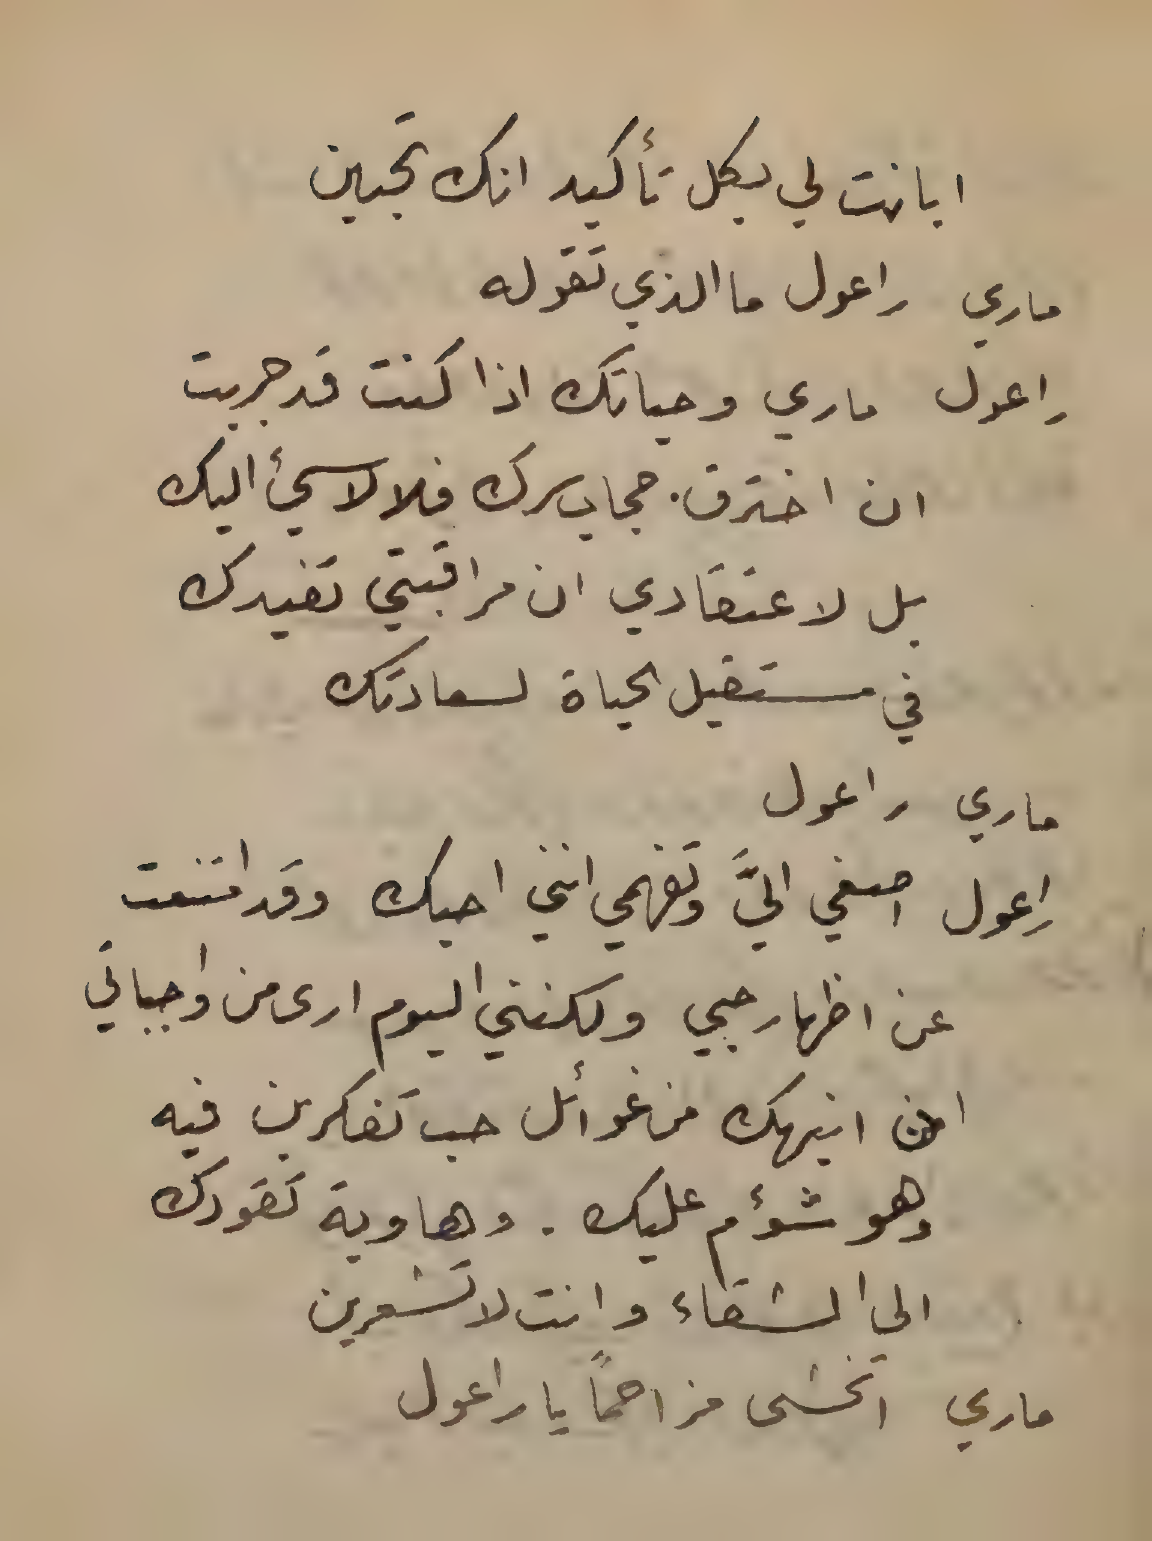 ابانت لي بكل تأكيد انك تحبين
ماري راعول ما الذي تقوله
راعول ماري وحياتك اذا كنت قد جربت
ان اخترق. حجاب سرك فلا لاسيئ اليك
بل لاعتقادي ان مراقبتي تفيدك
في مستقبل الحياة لسعادتك
ماري راعول
راعول اصغي اليَّ وتفهمي انني احبك وقد امتنعت
عن اظهار حبي ولكنني اليوم ارى من واجباتي
ان انبهك من غوائل حب تفكرين فيه
وهو شؤم عليك . وهاوية تقودك
الى الشقاء وانت لا تشعرين
ماري اتخشى مزاحماً يا راعول